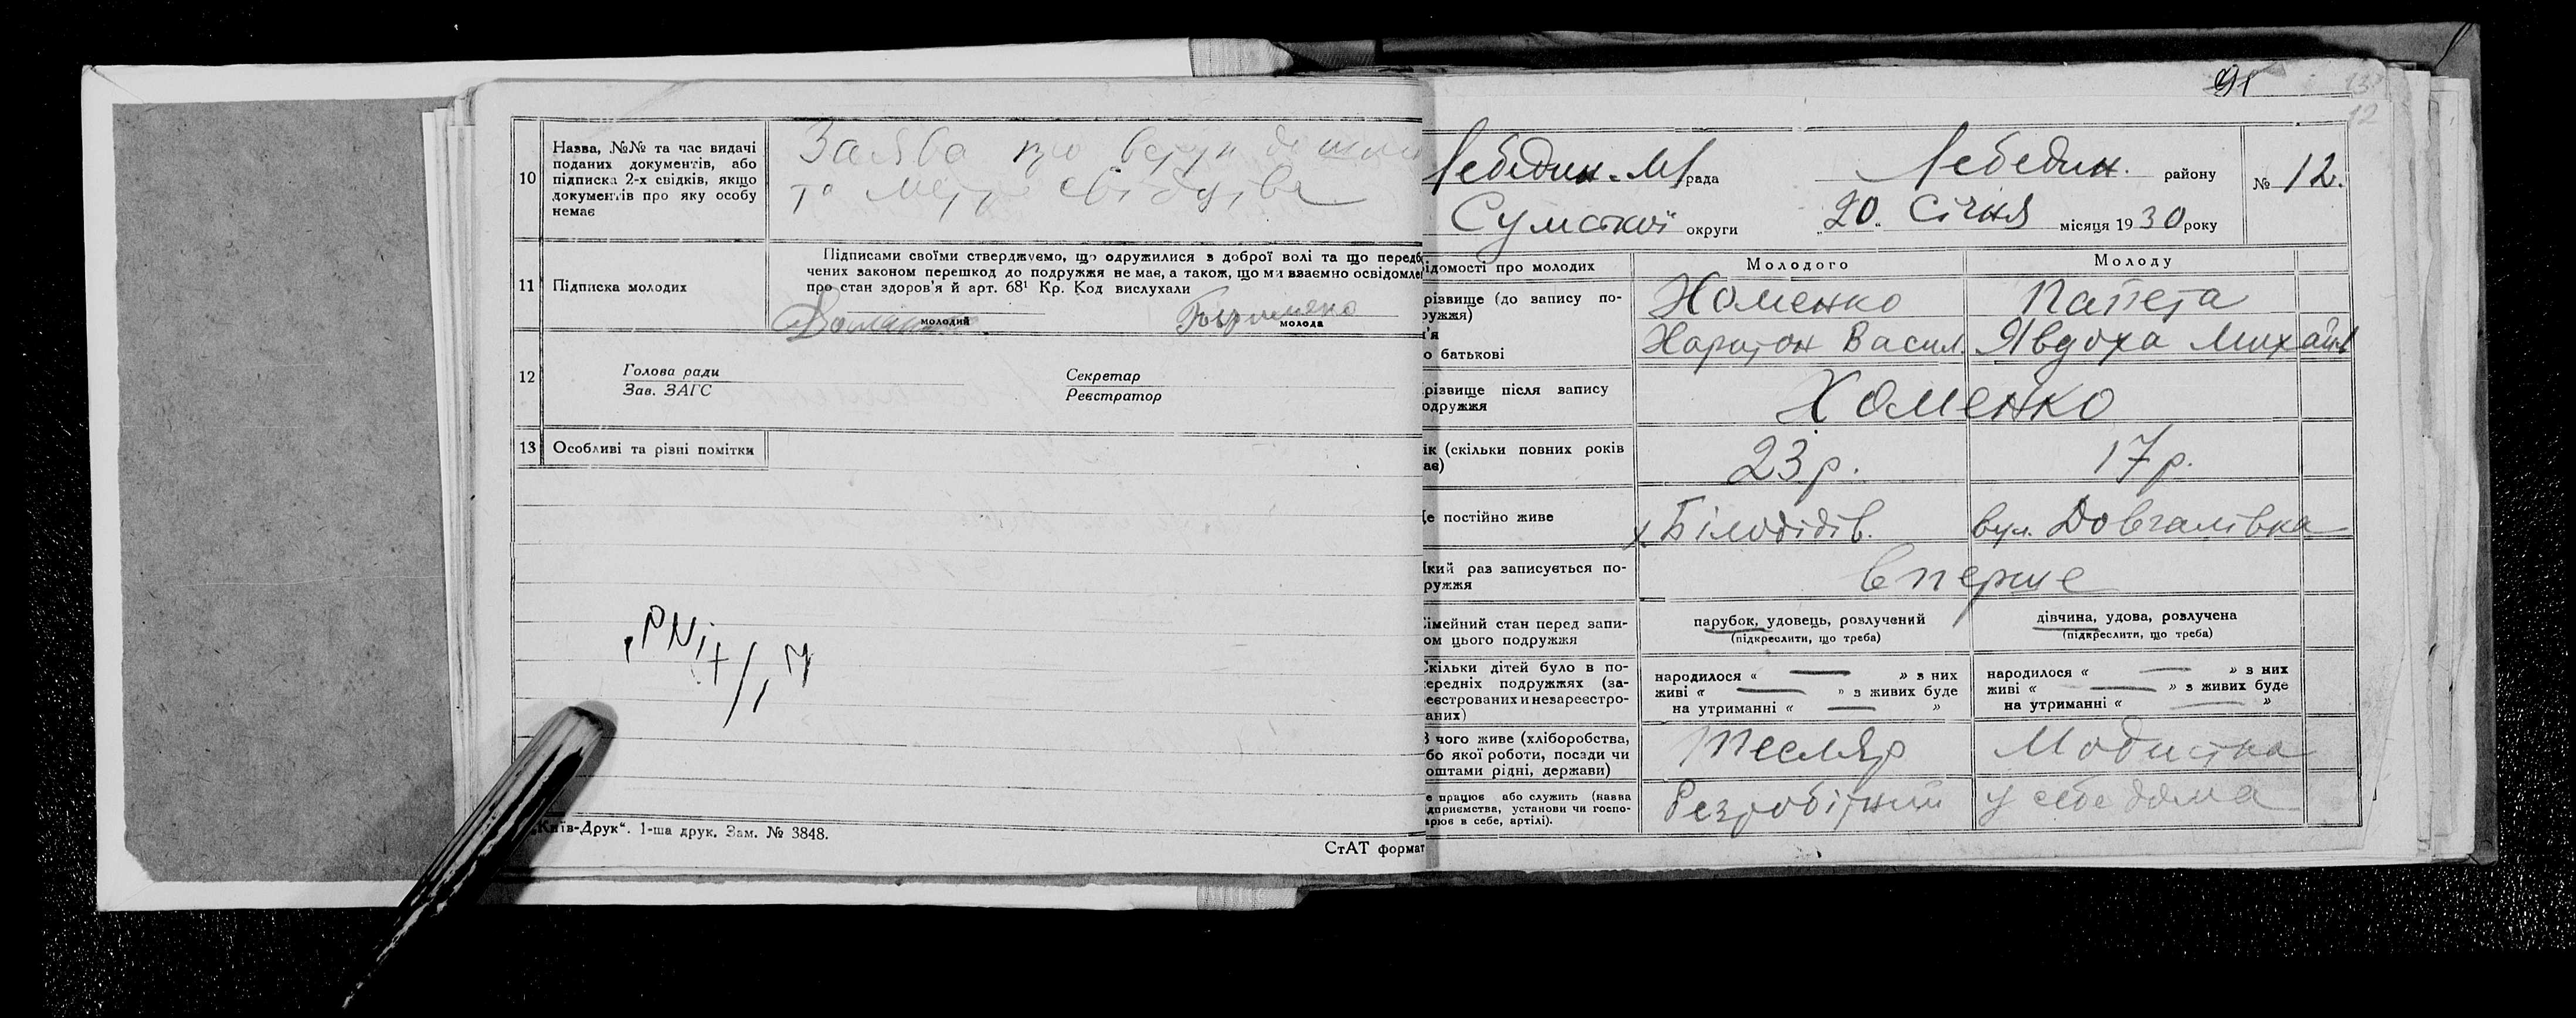 10
Назва, №№ та час видачі
поданих документів, або
підписка 2-х свідків, якщо
документів про яку особу
немає
Заява про вступ до шлю
та свідоцтва
11
Підписка молодих
Підписами своїми стверджуємо, що одружилися з доброї волі та що передб
чених законом перешкод до подружжя не має, а також, що ми взаємно освідомле
про стан здоров'я й арт. 68¹ Кр. Код вислухали
молодий
молода
12
Голова ради
Зав. ЗАГС
Секретар
Реєстратор
13
Особливі та різні помітки
„Київ-Друк“. 1-ша друк. Зам. № 3848.
СтАТ формат
91
13
12
Лебедин. М рада
Лебедин. району
№ 12.
Сумської округи
„20„ Січня місяця 1930 року
ідомості про молодих
Молодого
Молоду
різвище (до запису по-
ружжя)
Хоменко
Папета
'я
о батькові
Харитон Васил.
Явдоха Михайл
різвище після запису
одружжя
Хоменко
ік (скільки повних років
ає)
23 р.
17 р.
Де постійно живе
х Білодідів.
вул. Довгалівка
Який раз записується по-
ружжя
вперше
імейний стан перед запи-
ом цього подружжя
парубок, удовець, розлучений
(підкреслити, що треба)
дівчина, удова, розлучена
(підкреслити, що треба)
Скільки дітей було в по-
ередніх подружжях (за-
реєстрованих и незареєстро-
аних)
народилося « — » з них
живі « — » з живих буде
на утриманні « — »
народилося « — » з них
живі « — » з живих буде
на утриманні « — »
З чого живе (хліборобства,
бо якої роботи, посади чи
оштами рідні, держави)
Тесляр
Модистка
е працює або служить (назва
ідприємства, установи чи госпо-
арює в себе, артілі).
Безробітний
у себе дома